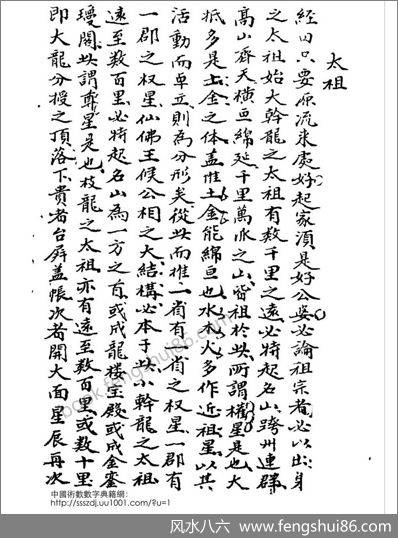 太祖
經曰只要源流來處好起家須是好公婆必論祖宗者必以出身
之太祖始大幹龍之太祖有數千里之遠必特起名山跨州連郡
高山齊天橫亘綿延千里萬派之山皆祖於此所謂權星是也大
抵多是土金之体蓋惟土金能綿亘也水木火多作近祖星以其
活動而卓立則為分形矣從此而推一省有一省之权星一郡有
一郡之权星仙佛王候公相之大結構必本于此小幹龍之太祖
遠至數百里必特起名山為一方之首或成龍楼宝殿或成金銮
瓊閣此謂尊星是也枝龍之太祖亦有遠至數百里或數十里
即大龍分授之頂落下貴者台屏盖帳次者開大面星辰再次
book.fengshui86.com
中國術數數字典籍網:
http://ssszdj.uu1001.com/?u=1
风水八六 www.fengshui86.com